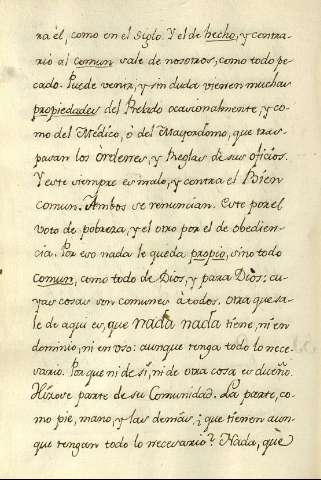 ra él, como en el Siglo. Y el de hecho, y contra-
rio al comun sale de nosotros, como todo pe-
cado. Puede venir, y sin duda vienen muchas
propiedades del Prelado ocasionalmente, y co-
mo del Medico, ò del Mayordomo, que tras-
pasan los órdenes, y Reglas de sus oficios.
Y este siempre es malo, y contra el Bien
Comun. Ambos se renuncian. Este por el
voto de pobreza, y el otro por el de obedien-
cia. Por eso nada le queda propio, sino todo
Comun, como todo de Dios, y para Diòs: cu-
yas cosas son comunes à todos. Otra que sa-
le de aqui es, que nada nada tiene, ni en
dominio, ni en uso: aunque tenga todo lo nece-
sario. Porque ni de sì, ni de otra cosa es dueño.
Hizose parte de su Comunidad. La parte, co-
mo pie, mano, y las demàs, ¿que tienen aun-
que tengan todo lo necesario? Nada, què